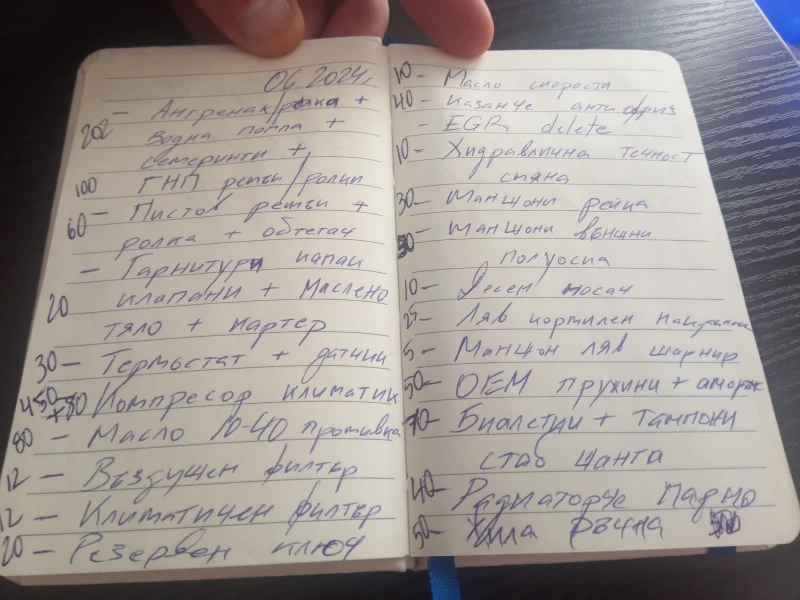 06.2024г.
202 - Ангренах/ролка +
водна помпа +
семеринги +
100 ГНП ремъи/ролки
60 - Пистов ремъи +
ролка + обтегач
- Гарнитури капаи
20 клапани + маслено
тяло + картер
30 - Термостат + датчик
450 +80 Компресор климатик
80 - Масло 10-40 промивка
12 - Въздушен филтър
12 - Климатичен филтър
20 - Резервен ключ
10 - Масло скорости
40 - Казанче антифриз
- EGR delete
10 - Хидравлична течност
спяна
30 - Маншони рейка
30 - маншони външни
полуоска
10 - Десен носач
25 - Ляв кормилен накрайник
5 - Маншон ляв шарнир
50 - OEM пружини + аморт
70 - Биалетки + тампони
стаб щанга
40 - Радиаторче парно
50 - Жила ръчна